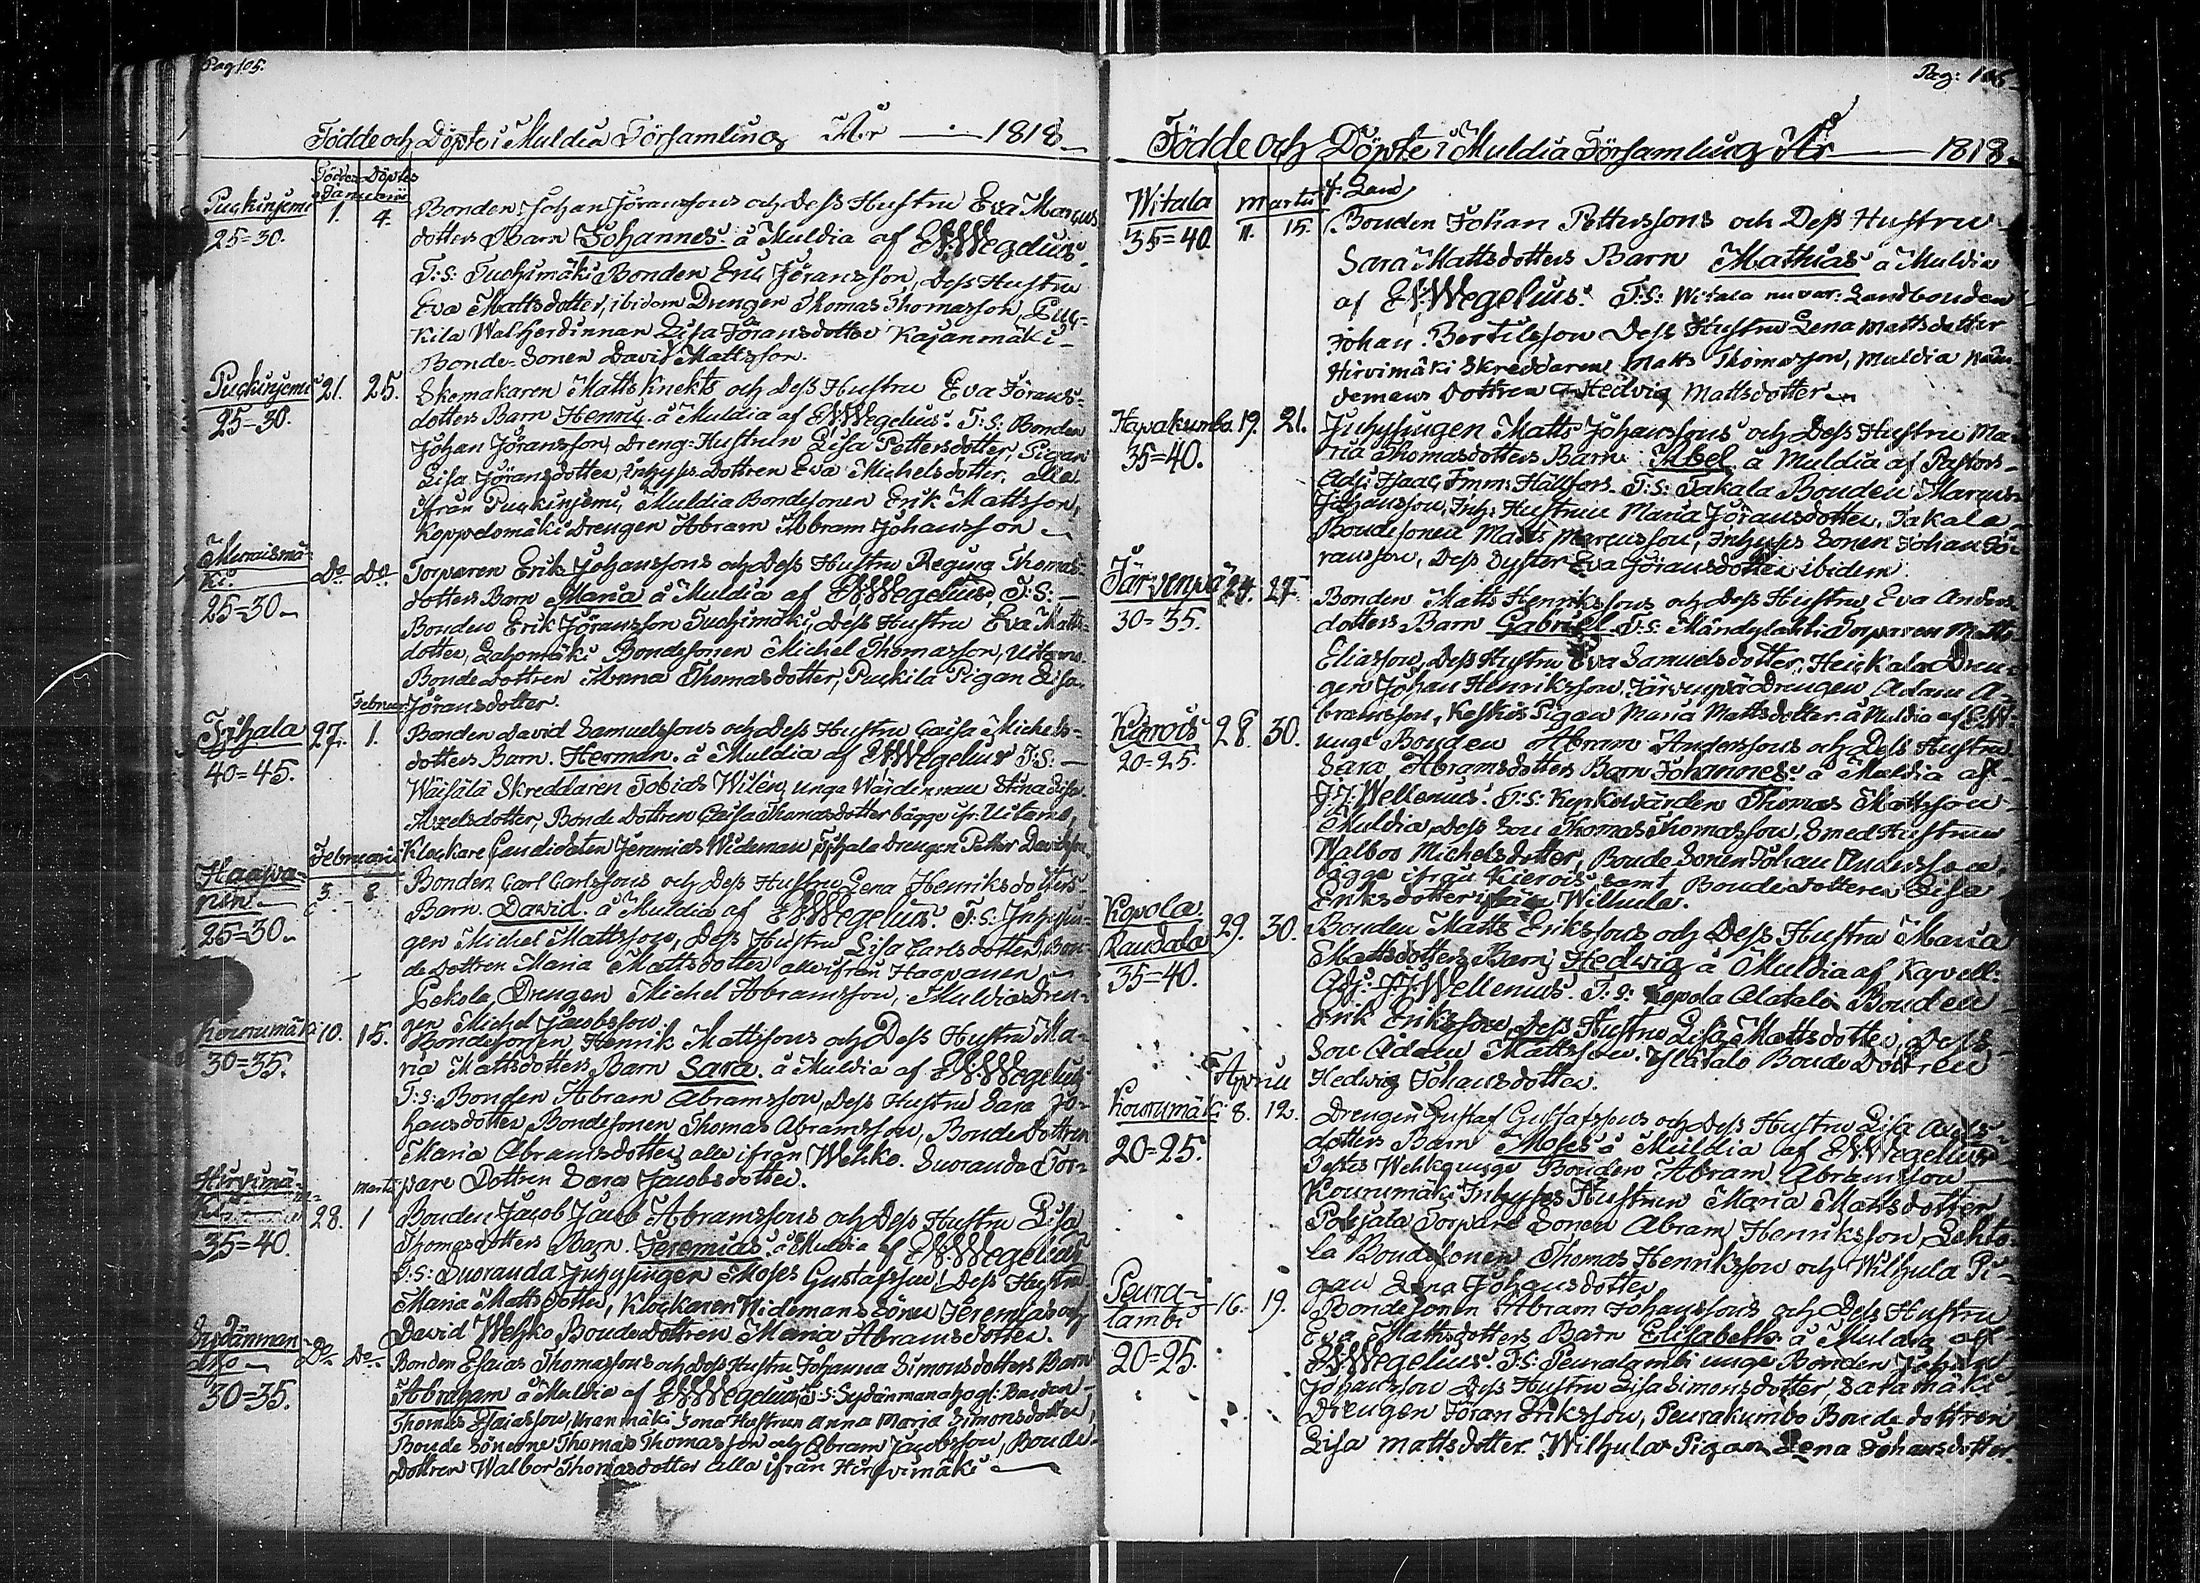 Pag 105.
Födde och Döpte i Muldia Församling År — 1818
Födde Döptes
Januarii
Puckinjemi 1. 4. Bonden Johan Jöranssons och Dess Hustru Eva Marcus
25=30. dotters Barn Johannes. å Muldia af EWWegelius.
T:S: Tuohimäki Bonden Eric Jöransson, Dess Hustru
Eva Mattsdotter, ibidem Drengen Thomas Thomasson, Puc-
kila Wallherdinnan Lisa Jöransdotter Kajanmäki
Bonde-Sonen David Mattsson.
Puckinjemi 21. 25. Skomakaren Matts Knekts och Dess Hustru Eva Jörans-
25=30. dotters Barn Henric å Muldia af EWWegelius. T:S: Bonden
Johan Jöransson, Dreng-Hustrun Lisa Pettersdotter, Pigan
Lisa Jöransdotter, Inhyses Dottren Eva Michelsdotter, alla
ifrån Puckinjemi, Muldia Bondesonen Erik Mattsson,
Koppelomäki Drengen Abram Abram Johansson
Muraismä-
ki. Do Do Torparen Erik Johanssons och Dess Hustru Regina Thomas-
25=30 dotters Barn Maria å Muldia af EWWegelius, T:S:
Bonden Erik Jöransson Tuohimäki, Dess Hustru Eva Matts-
dotter, Lahomäki Bondesonen Michel Thomasson, Uitamo
Bonde Dottren Anna Thomasdotter, Puckila Pigan Lisa
Februar: Jöransdotter.
Tihala 27. 1. Bonden David Samuelssons och Dess Hustru Caisa Michels-
40=45. dotters Barn. Herman. å Muldia af EWWegelius T:S:
Wäisälä Skreddaren Tobias Wilén, unga Wärdinnan Stina Lisa
Axelsdotter, Bonde Dottren Caisa Thomasdotter bägge ifr: Uitamo,
Februarii Klockare Candidaten Jeremias Wideman, Tihala Drengen Petter Davidsson.
Haapa-
nen 3. 8. Bonden Carl Carlssons och Dess Hustru Lena Henriksdotters
25=30 Barn. David. å Muldia af EWWegelius. T:S: Inhysin-
gen Michel Mattsson, Dess Hustru Lisa Carlsdotter, Bon-
de Dottren Maria Mattsdotter alla ifrån Haapanen
Pekola, Drengen Michel Abramsson, Muldia Dren-
gen Michel Jacobsson.
Kourumäki 10. 15. Bondesonen Henrik Mattssons och Dess Hustru Ma-
30=35. ria Mattsdotters Barn Sara. å Muldia af EWWegelius
T:S: Bonden Abram Abramsson, Dess Hustru Sara Jo-
hansdotter, Bondesonen Thomas Abramsson, Bonde Dottren
Maria Abramsdotter, alla ifrån Wehko. Suoranda Tor-
Martii pare Dottren Sara Jacobsdotter.
Hirvimä-
ki 28. 1 Bonden Jacob Jacob Abramssons och Dess Hustru Lisa
35=40. Thomasdotters Barn. Jeremias. å Muldia af EWWegelius
T:S: Suoranda Inhysingen Moses Gustafsson, Dess Hustru
Maria Mattsdotter, Klockaren Widemans Söner Jeremias och
David Wehko Bondedottren Maria Abramsdotter.
Sydänman
aho Do Do Bonden Esaias Thomassons och Dess Hustru Johanna Simonsdotters Barn
30=35. Abraham å Muldia af EWWegelius, T:S: Sydänmanaho gl: Bonden
Thomas Esaiasson, Kranmäki Sona Hustrun Anna Maria Simonsdotter,
Bonde Sönerne Thomas Thomasson och Abram Jacobsson, Bonde
Dottren Walbor Thomasdotter alla ifrån Hirvimäki
Pag: 106
Födde och Döpte i Muldia Församling År — 1818.
Witala Martii f. Land
35=40 11. 15. Bonden Johan Petterssons och Dess Hustru
Sara Mattsdotters Barn Mathias å Muldia
af EWWegelius. T:S: Witala nuvar: Landbonden
Johan Bertilsson Dess Hustru Lena Mattsdotter
Hirvimäki Skreddaren Matts Thomasson, Muldia Näm-
demans Dottren Hedvig Mattsdotter
Hapakumbo 19. 21. Inhysingen Matts Johanssons och Dess Hustru Ma-
35=40. ria Thomasdotters Barn Abel å Muldia af Pastors-
Adj: Isaac Imm: Hällfors. T:S: Takala Bonden Marcus
Johansson, Inh: Hustrun Maria Jöransdotter, Takala
Bondesonen Matts Marcusson, Inhyses Sonen Johan Jö-
ransson, Dess Syster Eva Jöransdotter ibidem
Järvenpä 24. 27 Bonden Matts Henrikssons och Dess Hustru Eva Anders-
30=35. dotters Barn Gabriel T:S: Mändylahti Torparen Matts
Eliasson, Dess Hustru Eva Samuelsdotter, Heickala Dren-
gen Johan Henriksson, Järvenpä Drengen Adam A-
bramsson, Keskis Pigan Maria Mattsdotter å Muldia af EW:
Kierois 28. 30. unge Bonden Abram Anderssons och Dess Hustru
20=25. Sara Abramsdotters Barn Johannes å Muldia af
J.J. Wellenius. T:S: Kyrkovärden Thomas Mattsson
Muldia, Dess Son Thomas Thomasson, Smed Hustrun
Walbor Michelsdotter, Bonde Sonen Johan Andersson
bägge ifrån Kierois samt Bondedotteren Lisa
Eriksdotter ifrån Wilhula.
Kopola
Raudala 29. 30. Bonden Matts Erikssons och Dess Hustru Maria
35=40. Mattsdotters Barn Hedwig å Muldia af Kapell:
Adj: J.J. Wellenius. T:S: Kopola Alatalo Bonden
Erik Eriksson, Dess Hustru Lisa Mattsdotter, Dess
Son Adam Mattsson. Ylätalo Bonde Dottren
Aprill Hedwig Johansdotter.
Kourumäki 8. 12. Drengen Gustaf Gustafssons och Dess Hustru Lisa Axels-
20=25. dotters Barn Moses å Muldia af EWWegelius
Testes Wehko unge Bonden Abram Abramsson
Kourumäki Inhyses Hustrun Maria Mattsdotter
Pohjala Torpare Sonen Abram Henriksson, Lehto-
la Bondesonen Thomas Henriksson och Wilhula Pi-
gan Lena Johansdotter
Peura-
lambi 16. 19. Bondesonen Abram Johanssons och Dess Hustru
20=25. Eva Mattsdotters Barn Elisabeth å Muldia af
EWWegelius. T:S: Peuralambi unge Bonden Johan
Johansson Dess Hustru Lisa Simonsdotter, Satamäki
Drengen Jöran Eriksson, Peurakumbo Bonde dottren
Lisa Mattsdotter. Wilhula Pigan Lena Johansdotter.